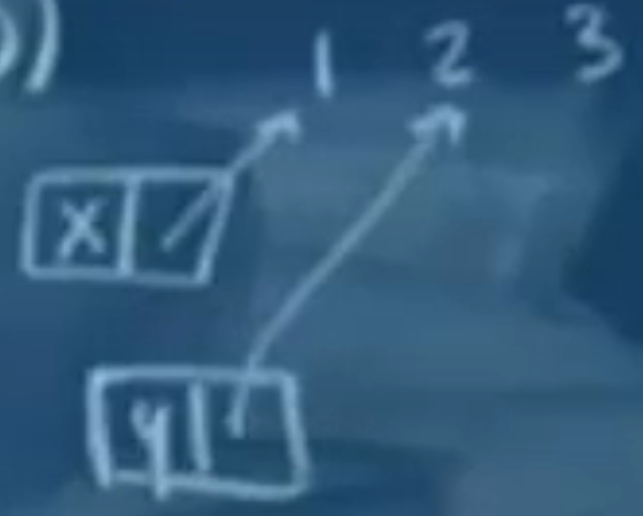 )
1 2 3
x
y